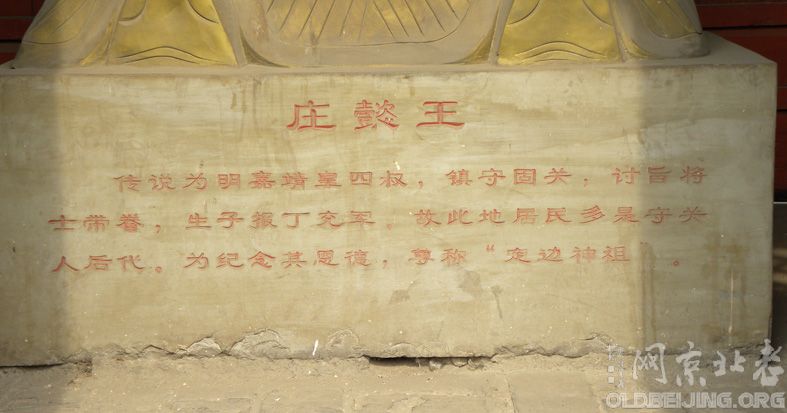 庄懿王
传说为明嘉靖皇四叔，镇守固关，讨旨将
士带眷，生子报丁充军。故此地居民多是守关
人后代。为纪念其恩德，尊称“定边神祖”。
老北京网
OLDBEIJING.ORG